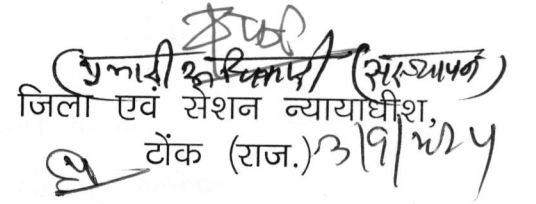 (प्रभारी अधिकारी) (संस्थापन)
जिला एवं सेशन न्यायाधीश,
टोंक (राज.) 3/9/2024